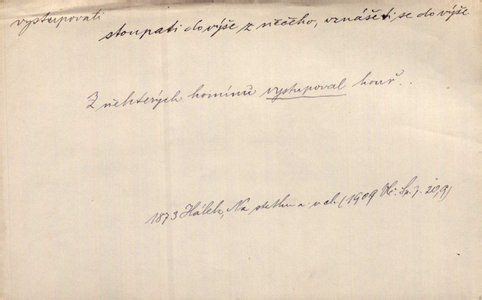 vystupovati
stoupati do výše z něčeho, vznášeti se do výše
Z některých komínů vystupoval kouř..
1873 Hálek, Na statku a v ch. (1909